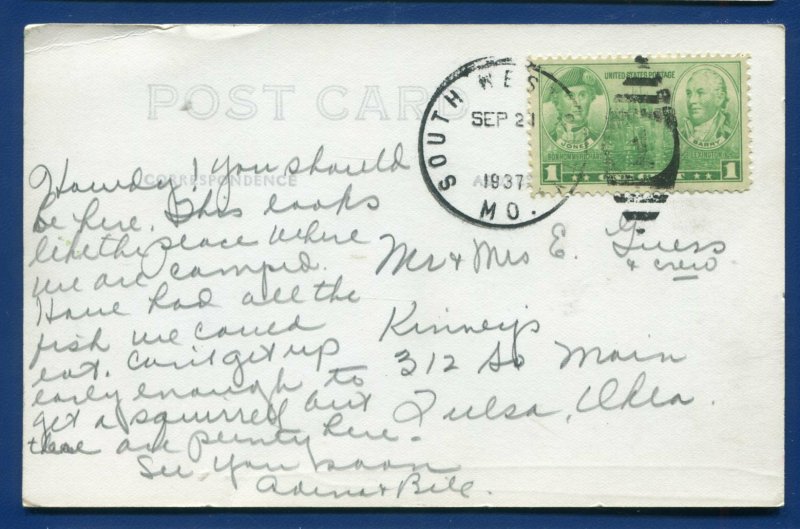 POST CARD
CORRESPONDENCE
SOUTH WEST
SEP 21
1937
MO.
UNITED STATES POSTAGE
JONES
BARRY
1
1
Howdy! You should
be here. This looks
like the place where
we are camped.
Have had all the
fish we could
eat. Can't get up
early enough to
get a squirrel but
there are plenty here.
See You soon
&Bill.
Mr & Mrs E. Guess
& crew
Kinney's
312 So Main
Tulsa, Okla.